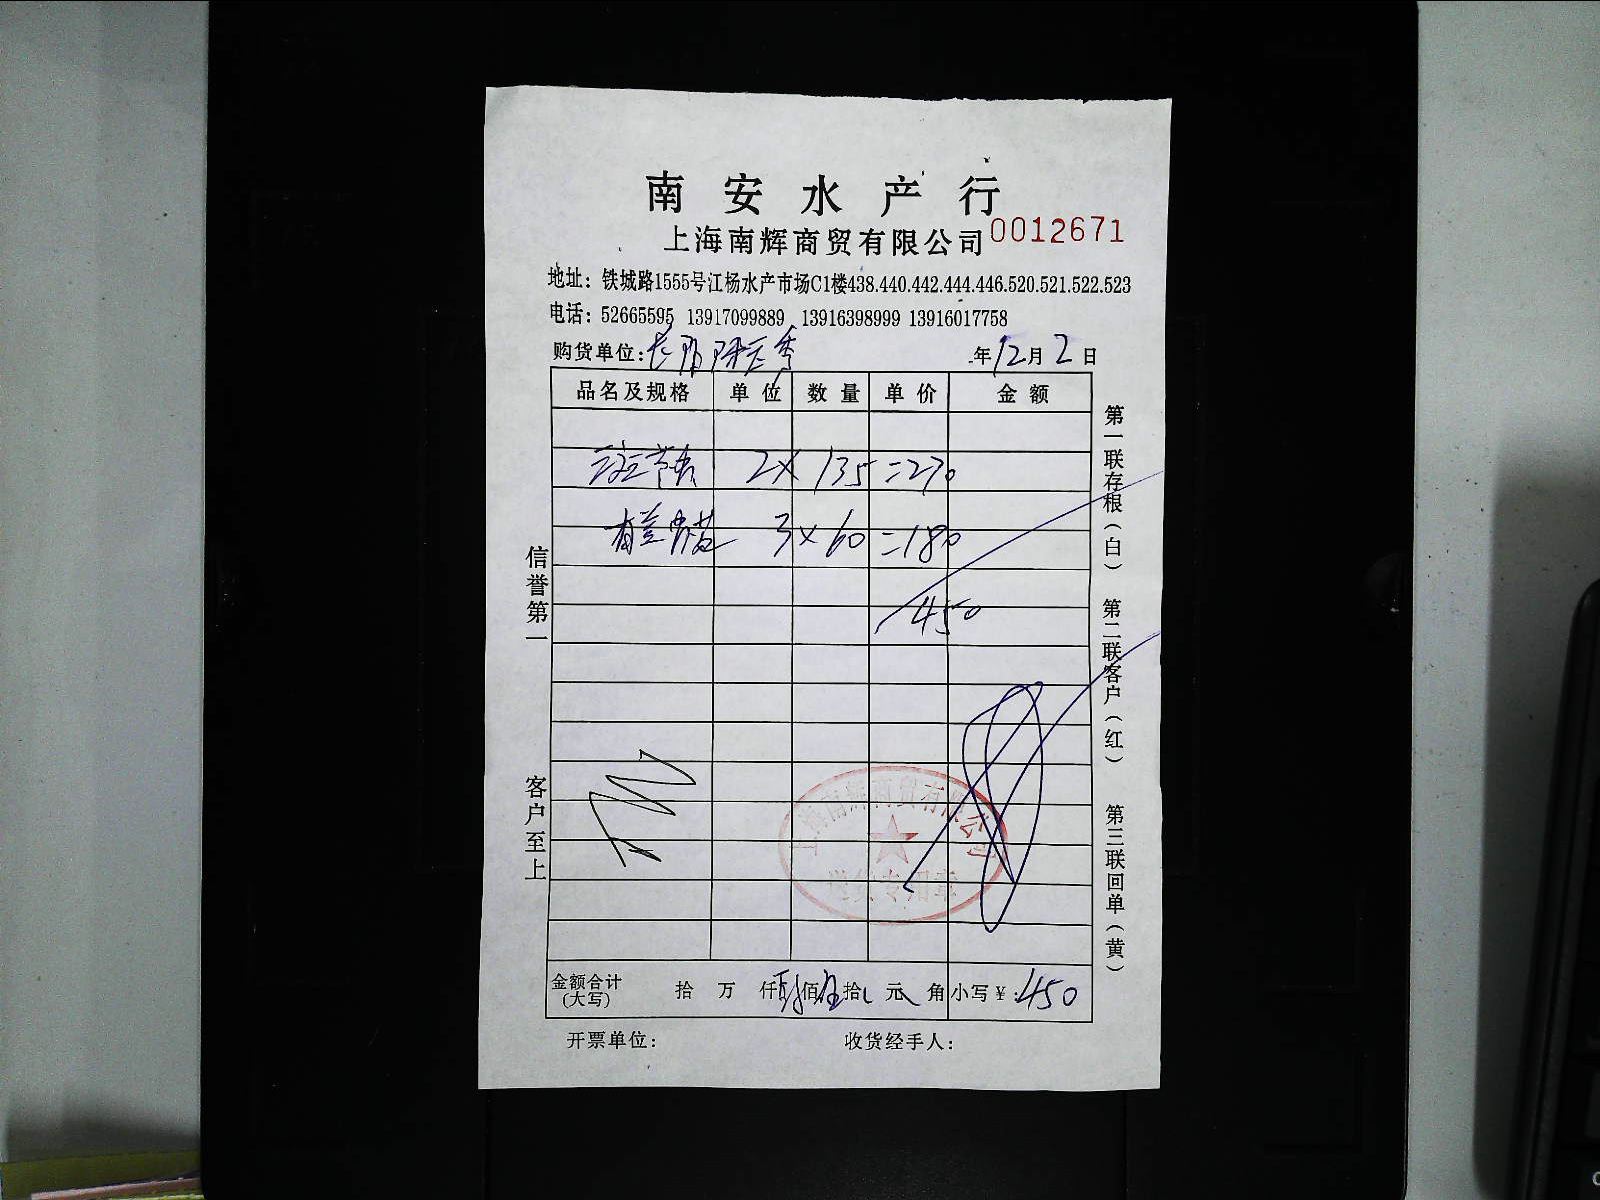 南安水产行
上海南辉商贸有限公司 0012671
地址：铁城路1555号江杨水产市场C1楼438.440.442.444.446.520.521.522.523
电话：52665595 13917099889 13916398999 13916017758
购货单位： 年12月2日
品名及规格 单位 数量 单价 金额
2× 135 =270
3×60 =180
450
信誉第一
客户至上
第一联存根（白） 第二联客户（红） 第三联回单（黄）
上海南辉商贸有限公司
金额合计（大写） 拾 万 仟 佰 伍 拾 元 角 小写￥：450
开票单位： 收货经手人：